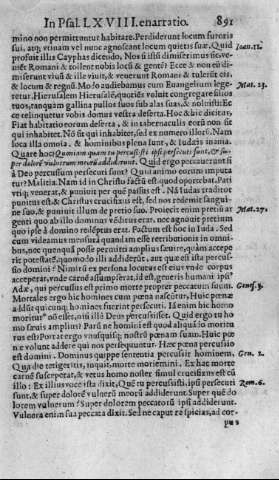 In Psal. LXVIII. enarratio. 891
mino non permittuntur habitare. Perdiderunt locum furoris
sui, atq; utinam vel nunc agnoscant locum quietis suæ. Quid Ioan. 11.
profuit illis Cayphas dicendo, Nos si isti dimiserimus sic, ve-
nient Romani & tollent nobis locũ & gentẽ? Ecce & non di-
miserunt viuũ & ille viuit, & venerunt Romani & tulerũt eis,
& locum & regnũ. Modo audiebamus cum Euangelium lege- Mat. 23.
retur. Hierusalem Hierusalẽ, quoties volui congregare filios
tuos, tanquam gallina pullos suos sub alas suas, & noluisti: Ec
ce relinquetur vobis domus vestra deserta. Hoc & hic dicitur,
Fiat habitatio eorum deserta, & in tabernaculis eorũ non sit
qui inhabitet. Nõ sit qui inhabitet, sed ex numero illorũ. Nam
loca illa omnia, & hominibus plena sunt, & Iudæis inania.
Quare hoc? Quoniam quem tu percussisti ipsi persecuti sunt, & su-
per dolorẽ vulnerum meorũ addiderunt. Quid ergo peccauerunt si
à Deo percussum persecuti sunt? Quid animo eorum imputa
tur? Malitia. Nam id in Christo factũ est quod oportebat. Pati
vtiq; venerat, & puniuit per quẽ passus est. Nã Iudas traditor
punitus est & Christus crucifixus est, sed nos redemit sangui-
ne suo, & puniuit illum de pretio suo. Proiecit enim pretiũ ar Mat. 27.
genti quo ab illo dominus vẽditus erat, nec agnouit pretium
quo ipse à domino redẽptus erat. Factum est hoc in Iuda. Sed
cum videamus mensurã quandam esse retributionis in omni-
bus, nec quenquã posse permitti amplius sæuire, quàm accepe
rit potestatẽ, quomodo illi addiderũt, aut quæ est ista percus-
sio domini? Nimirũ ex persona locutus est eius vnde corpus
acceperat, vnde carnẽ assumpserat, id est generis humani ipsi9
Adæ, qui percussus est primo morte propter peccatum suum. Genes. 3.
Mortales ergo hic homines cum pœna nascũtur, Huic pœnæ
addũt quicunq; homines fuerint persecuti. Iã enim hic homo
moritur9 nõ esset, nisi illũ Deus percussisset. Quid ergo tu ho
mo sæuis amplius? Parũ ne homini est quod aliquãdo moritu
rus est? Portat ergo vnusquisq; nostrũ pœnam suam. Huic pœ
næ volunt addere qui nos persequuntur. Hæc pœna percussio
est domini. Dominus quippe sententia percussit hominem, Gen. 2.
Qua die tetigeritis, inquit, morte moriemini. Ex hac morte
carnẽ susceperat, & vetus homo noster simul crucifixus est cũ
illo: Ex illius voce ista dixit, Quẽ tu percussisti, ipsi persecuti Rom. 6.
sunt, & super dolorẽ vulnerũ meorũ addiderunt. Super quẽ do
lorem vulnerum? Super dolorem peccatorũ ipsi addiderunt.
Vulnera enim sua peccata dixit. Sed ne caput respicias, ad cor-
pus